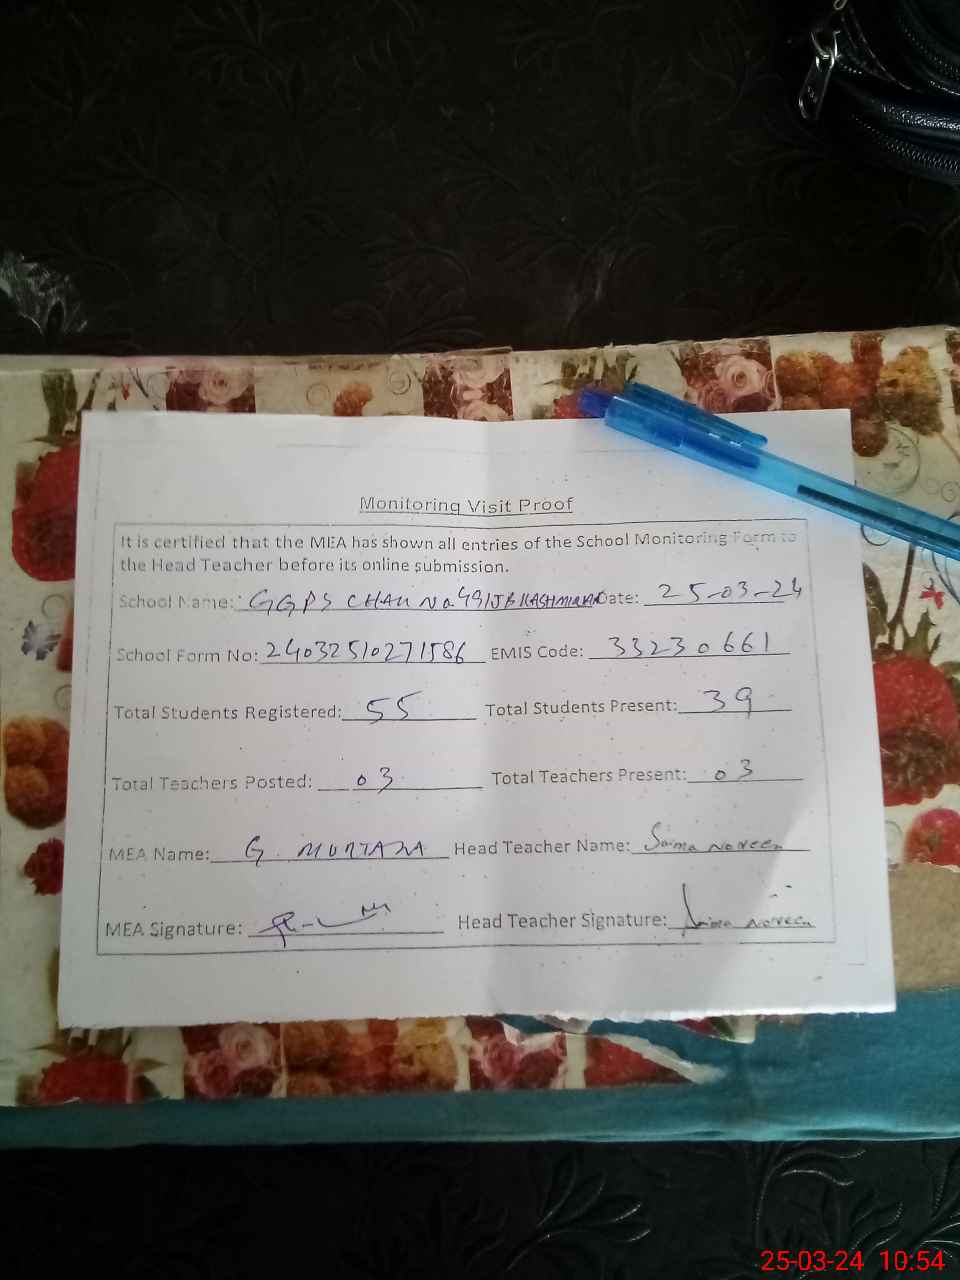 Monitoring Visit Proof
It is certified that the MEA has shown all entries of the School Monitoring Form to
the Head Teacher before its online submission.
School Name: GGPS CHAK No. 491JB KASHMIRAN Date: 25-03-24
School Form No: 24032510271586 EMIS Code: 33230661
Total Students Registered: 55 Total Students Present: 39
Total Teachers Posted: 03 Total Teachers Present: 03
MEA Name: G. MURTAZA Head Teacher Name: Saima Noreen
MEA Signature: Head Teacher Signature: Saima Noreen
25-03-24 10:54